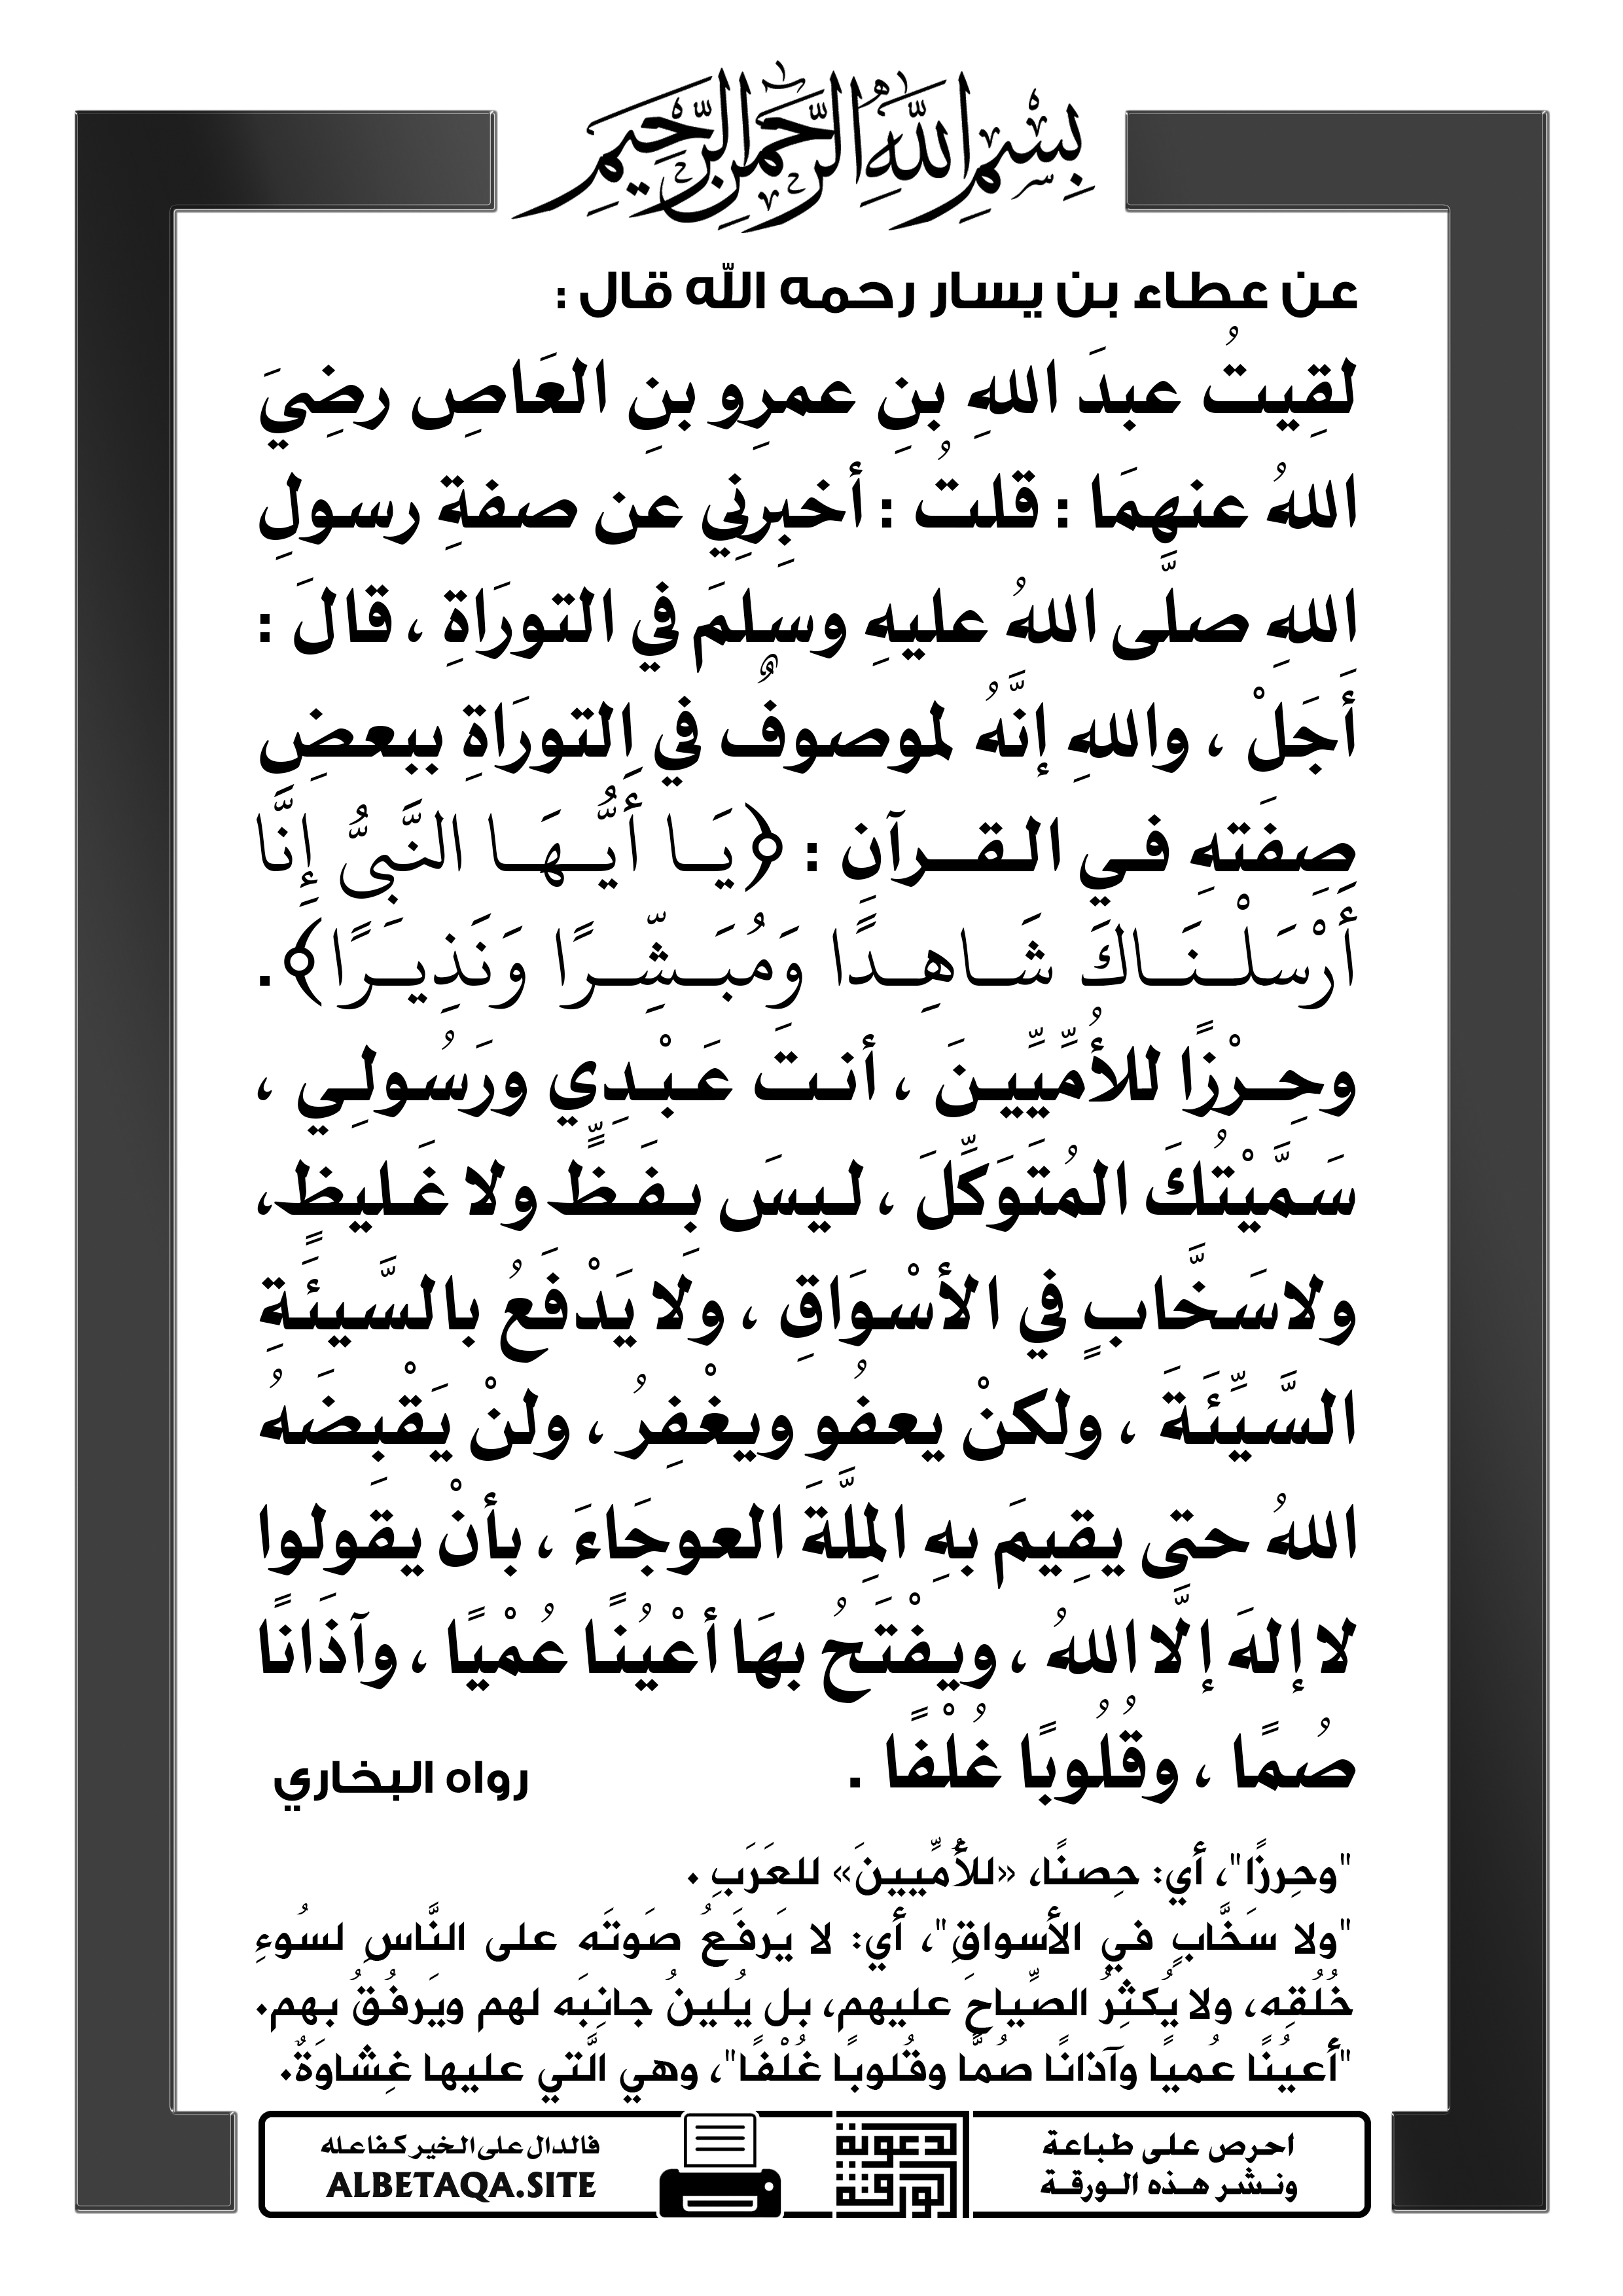 بِسْمِ اللَّهِ الرَّحْمَنِ الرَّحِيمِ
عن عطاء بن يسار رحمه الله قال :
لقِيتُ عبدَ اللهِ بنِ عمرِو بنِ العَاصِ رضِيَ
اللهُ عنهمَا : قلتُ : أخبِرنِي عن صفةِ رسولِ
اللهِ صلَّى اللهُ عليهِ وسلمَ في التورَاةِ ، قالَ :
أَجَلْ ، واللهِ إنَّهُ لموصوفٌ في التورَاةِ ببعضِ
صِفَتهِ في القرآنِ : ﴿يَا أَيُّهَا النَّبِيُّ إِنَّا
أَرْسَلْنَاكَ شَاهِدًا وَمُبَشِّرًا وَنَذِيرًا﴾.
وحِرْزًا للأُمِّيِّينَ ، أنتَ عَبْدِي ورَسُولِي ،
سَمَّيْتُكَ المُتَوَكِّلَ ، ليسَ بِفَظٍّ ولا غَليظٍ،
ولاسَخَّابٍ في الأسْوَاقِ ، ولَا يَدْفَعُ بالسَّيئَةِ
السَّيِّئَةَ ، ولكنْ يعفُو ويغْفِرُ ، ولنْ يَقْبِضَهُ
اللهُ حتى يقِيمَ بهِ المِلَّةَ العوجَاءَ ، بأنْ يقولوا
لا إلهَ إلَّا اللهُ ، ويفْتَحُ بهَا أعْيُنًا عُمْيًا ، وآذَانًا
صُمًا ، وقُلُوبًا غُلْفًا .
رواه البخاري
"وحِرزًا"، أي: حِصنًا، «للأُمِّيينَ» للعَرَبِ .
"ولا سَخَّابٍ في الأسواقِ"، أي: لا يَرفَعُ صَوتَه على النَّاسِ لسُوءِ
خُلُقِه، ولا يُكثِرُ الصِّياحَ عليهم، بل يُلينُ جانِبَه لهم ويَرفُقُ بهم.
"أعيُنًا عُميًا وآذانًا صُمًّا وقُلوبًا غُلْفًا"، وهي الَّتي عليها غِشاوَةٌ.
احرص على طباعة
ونشر هذه الورقة
الورقة
الدعوية
فالدال على الخير كفاعله
ALBETAQA.SITE